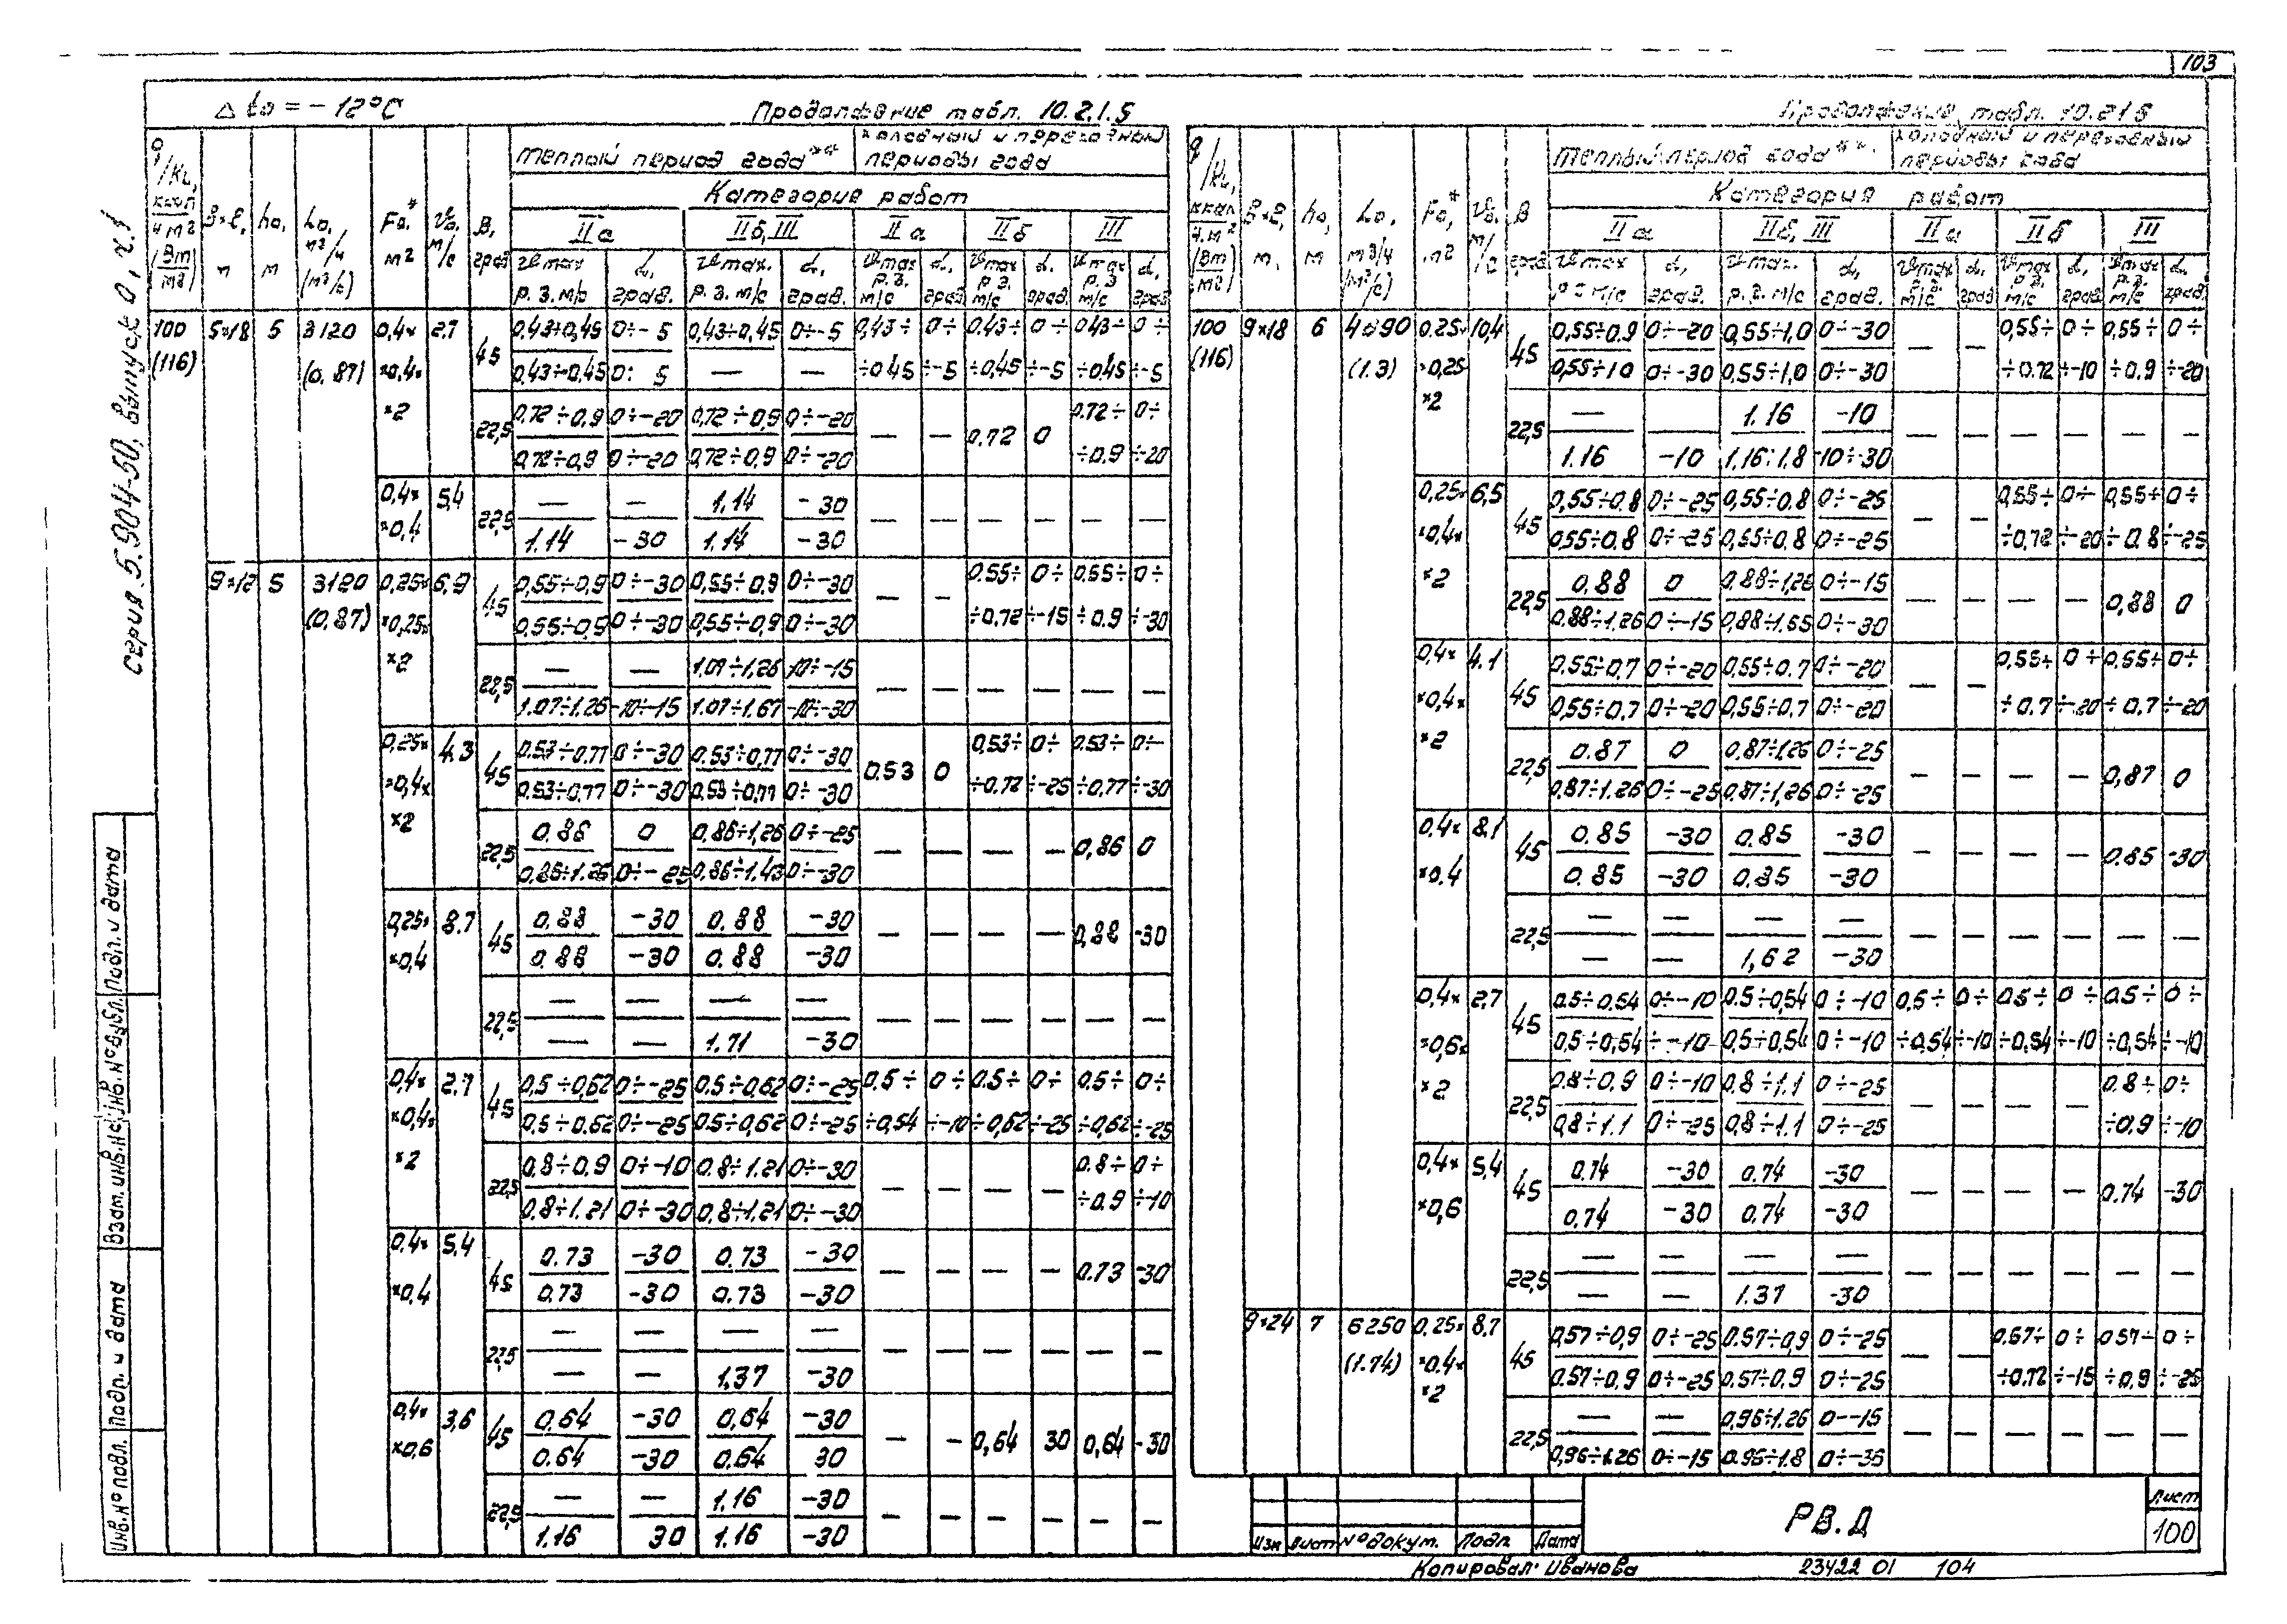 103
Δ to = - 12°C
Продолжение табл. 10.2.1.5
q/кL, ккал/ч м² (Вт/м²)
в×ℓ, м
ho, м
Lo, м³/ч (м³/с)
Fo,* м²
Vo, м/с
β, град
теплый период года**
холодный и переходный периоды года
Категория работ
IIа IIб, III IIа IIб III
Vmax р.з. м/с α, град. Vmax. р.з. м/с α, град. Vmax р.з. м/с α, град Vmax р.з. м/с α, град Vmax р.з м/с α, град
100 (116) 5×18 5 3120 (0.87) 0,4××0,4××2 2.7
45 0,43÷0,45 0÷-5 0,43÷0,45 0÷-5 0,43÷ 0÷ 0.43÷ 0÷ 0,43÷ 0÷
0,43÷0,45 0÷ 5 — — ÷0,45 ÷-5 ÷0,45 ÷-5 ÷0,45 ÷-5
22,5 0,72÷0,9 0÷-20 0,72÷0,9 0÷-20 — — 0,72 0 0.72÷ 0÷
0,72÷0,9 0÷-20 0,72÷0,9 0÷-20 ÷0.9 ÷20
0,4××0,4 5,4
22,5 — — 1,14 -30 — — — — — —
1.14 -30 1.14 -30
9×12 5 3120 (0,87) 0,25××0,25××2 6,9
45 0,55÷0,9 0÷-30 0,55÷0,9 0÷-30 — — 0.55÷ 0÷ 0,55÷ 0÷
0,55÷0,9 0÷-30 0,55÷0,9 0÷-30 ÷0.72 ÷-15 ÷0.9 ÷-30
22,5 — — 1.07÷1,26 -10÷-15 — — — — — —
1.07÷1.26 -10÷-15 1.07÷1.67 -10÷-30
0,25××0,4××2 4.3
45 0.53÷0,77 0÷-30 0.53÷0,77 0÷-30 0.53 0 0,53÷ 0÷ 0.53÷ 0÷
0,53÷0,77 0÷-30 0,53÷0,77 0÷-30 ÷0,72 ÷-25 ÷0,77 ÷-30
22,5 0.86 0 0,86÷1,26 0÷-25 — — — — 0,86 0
0,86÷1.26 0÷-25 0,86÷1.43 0÷-30
0,25××0,4 8.7
45 0.88 -30 0.88 -30 — — — — 0,88 -30
0.88 -30 0.88 -30
22,5 — — — — — — — — — —
— — 1.71 -30
0,4××0,4××2 2.7
45 0,5÷0,62 0÷-25 0.5÷0,62 0÷-25 0,5÷ 0÷ 0.5÷ 0÷ 0,5÷ 0÷
0,5÷0.62 0÷-25 0.5÷0,62 0÷-25 ÷0,54 ÷-10 ÷0,62 ÷-25 ÷0,62 ÷-25
22,5 0,8÷0,9 0÷-10 0.8÷1.21 0÷-30 — — — — 0.8÷ 0÷
0.8÷1.21 0÷-30 0,8÷1.21 0÷-30 ÷0.9 ÷10
0,4××0,4 5,4
45 0.73 -30 0.73 -30 — — — — 0.73 -30
0.73 -30 0.73 -30
22,5 — — — — — — — — — —
— — 1,37 -30
0,4××0,6 3,6
45 0,64 -30 0,64 -30 — — 0,64 30 0,64 -30
0.64 -30 0.64 30
22,5 — — 1.16 -30 — — — — — —
1.16 30 1.16 -30
Продолжение табл. 10.2.1.5
q/кL, ккал/ч.м² (Вт/м²)
в×ℓ, м.
ho, м
Lo. м³/ч (м³/с)
Fo,* м²
Vo, м/с
β град
теплый период года**
холодный и переходный периоды года
Категория работ
IIа IIб, III IIа IIб III
Vmax р.з м/с α, град. Vmax. р.з. м/с α, град. Vmax р.з. м/с α, град Vmax р.з. м/с α, град Vmax р.з. м/с α, град.
100 (116) 9×18 6 4690 (1.3) 0.25××0,25×2 10,4
45 0,55÷0.9 0÷-20 0,55÷1,0 0÷-30 — — 0,55÷ 0÷ 0,55÷ 0÷
0,55÷1.0 0÷-30 0,55÷1,0 0÷-30 ÷0.72 ÷-10 ÷0.9 ÷-20
22,5 — 1.16 -10 — — — — — —
1.16 -10 1.16÷1.8 -10÷-30
0,25××0,4××2 6,5
45 0,55÷0.8 0÷-25 0,55÷0.8 0÷-25 — — 0,55÷ 0÷ 0,55÷ 0÷
0,55÷0.8 0÷-25 0,55÷0,8 0÷-25 ÷0,72 ÷-20 ÷0.8 ÷-25
22,5 0.88 0 0.88÷1,26 0÷-15 — — — — 0,88 0
0.88÷1.26 0÷-15 0,88÷1.55 0÷-30
0,4××0,4××2 4.1
45 0.55÷0.7 0÷-20 0,55÷0.7 0÷-20 — — 0,55÷ 0÷ 0,55÷ 0÷
0,55÷0.7 0÷-20 0,55÷0,7 0÷-20 ÷0.7 ÷-20 ÷0.7 ÷-20
22,5 0.87 0 0.87÷1,26 0÷-25 — — — — 0,87 0
0,87÷1.26 0÷-25 0.87÷1,26 0÷-25
0,4××0.4 8.1
45 0.85 -30 0.85 -30 — — — — 0.85 -30
0.85 -30 0.85 -30
22,5 — — — — — — — — — —
— — 1,62 -30
0,4××0,6××2 2.7
45 0.5÷0,54 0÷-10 0.5÷0,54 0÷-10 0,5÷ 0÷ 0.5÷ 0÷ 0.5÷ 0÷
0.5÷0,54 ÷-10 0,5÷0,54 0÷-10 ÷0,54 ÷-10 ÷0,54 ÷-10 ÷0,54 ÷-10
22,5 0.8÷0,9 0÷-10 0,8÷1.1 0÷-25 — — — — 0.8÷ 0÷
0,8÷1.1 0÷-25 0,8÷1.1 0÷-25 ÷0.9 ÷-10
0,4××0,6 5,4
45 0.74 -30 0.74 -30 — — — — 0.74 -30
0,74 -30 0,74 -30
22,5 — — — — — — — — — —
— — 1.37 -30
9×24 7 6250 (1.74) 0,25××0.4××2 8.7
45 0,57÷0,9 0÷-25 0.57÷0,9 0÷-25 — — 0.57÷ 0÷ 0.57÷ 0÷
0.57÷0,9 0÷-25 0.57÷0,9 0÷-25 ÷0.72 ÷-15 ÷0,9 ÷-25
22,5 — — 0,96÷1.26 0--15 — — — — — —
0,96÷1.26 0÷-15 0.96÷1.8 0÷-35
Серия 5.904-50, выпуск 0, ч.1
Инв.№ подл. Подп. и дата Взам. инв.№ Инв.№ дубл. Подп. и дата
Изм Лист № докум. Подп. Дата
РВ.Д
Лист
100
Копировал: Иванова 23422 01 104